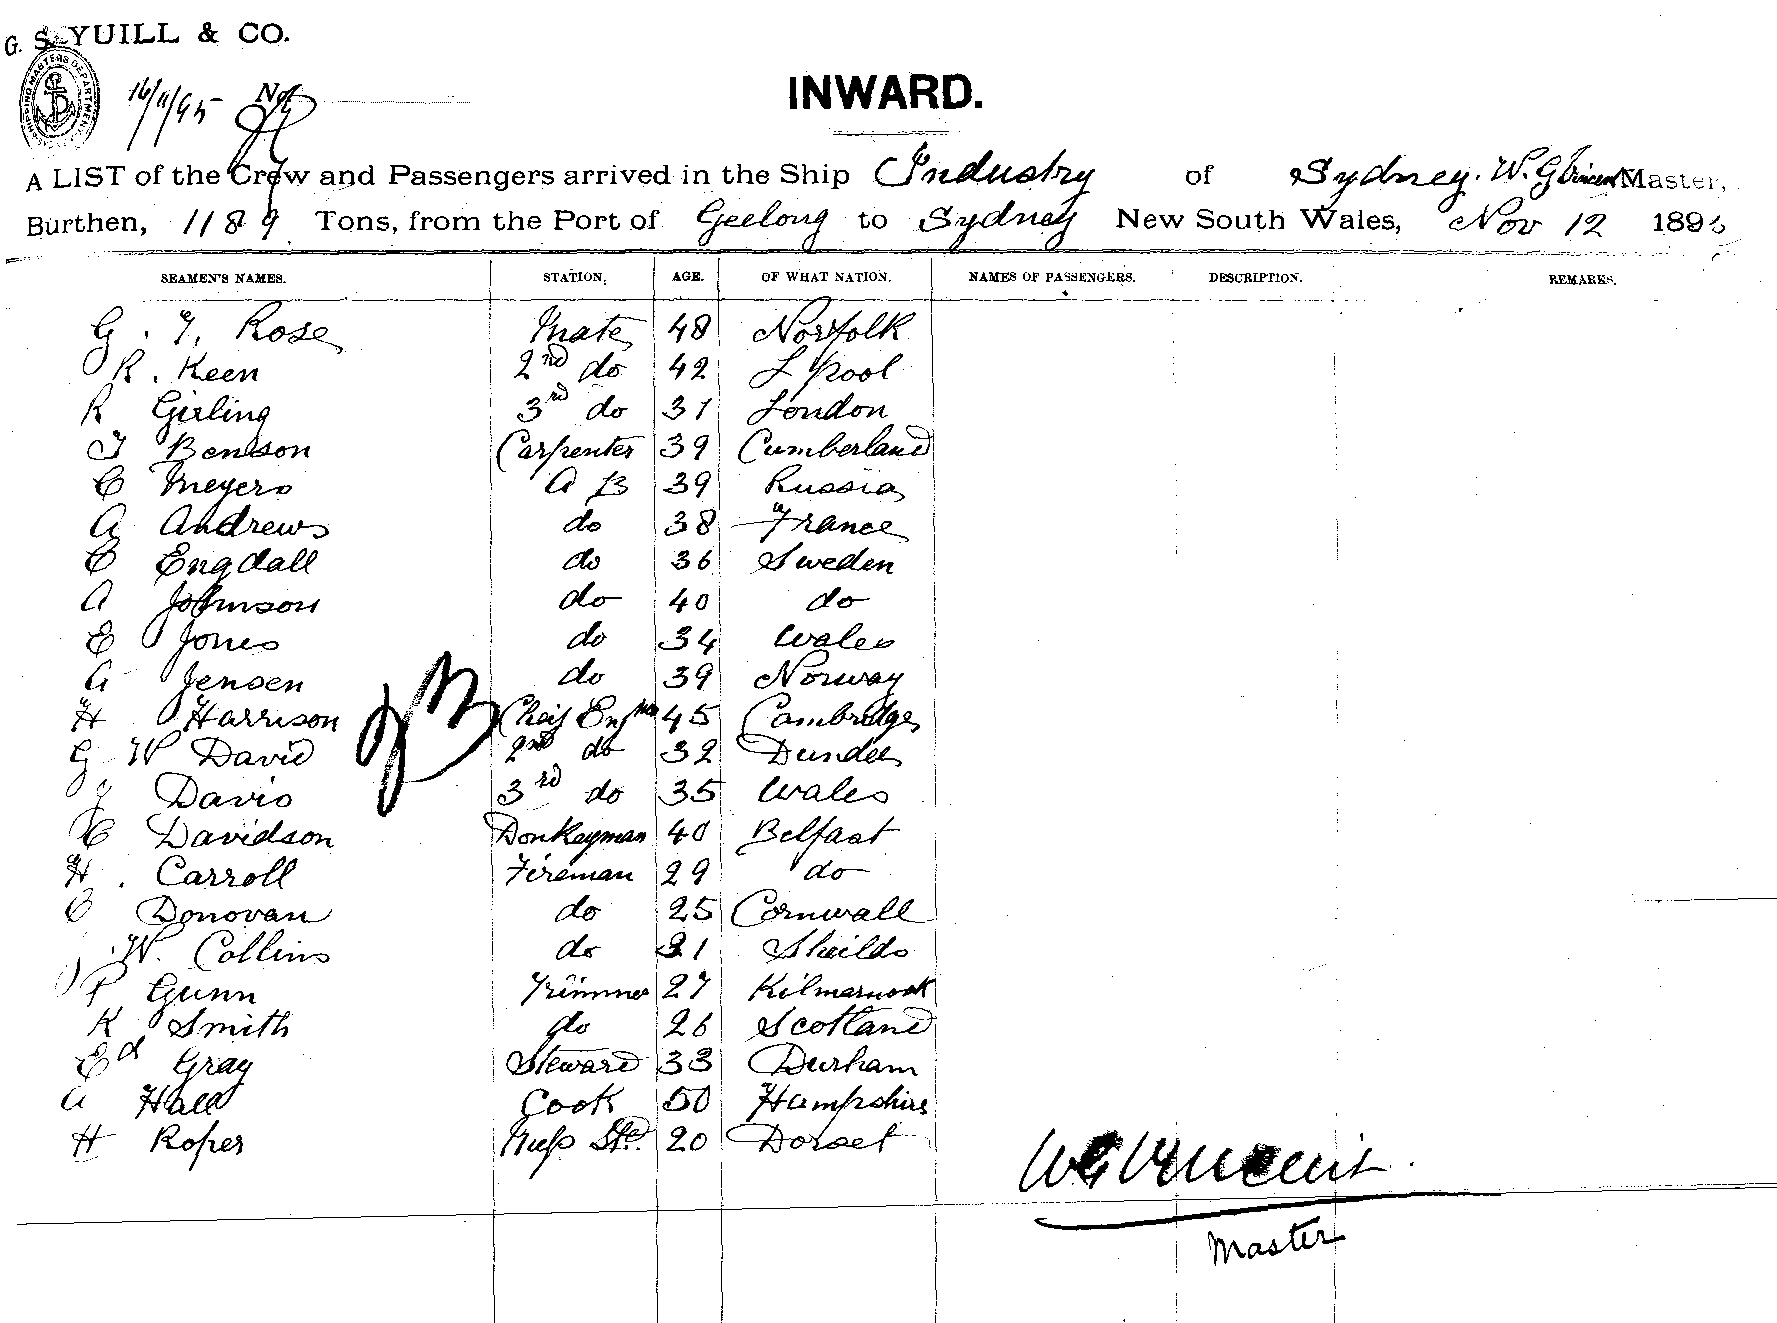 G. S. YUILL & CO.
SHIPPING MASTERS DEPARTMENT
16/11/95 No.
INWARD.
A LIST of the Crew and Passengers arrived in the Ship Industry of Sydney. W. G Vincent Master,
Burthen, 1189 Tons, from the Port of Geelong to Sydney New South Wales, Nov 12 1895
SEAMEN'S NAMES. STATION. AGE. OF WHAT NATION. NAMES OF PASSENGERS. DESCRIPTION. REMARKS.
G. F. Rose Mate 48 Norfolk
R. Keen 2nd do 42 L'pool
R Girling 3rd do 31 London
T Benson Carpenter 39 Cumberland
C Meyers A B 39 Russia
A Andrews do 38 France
C Engdall do 36 Sweden
A Johnson do 40 do
E Jones do 34 Wales
A Jensen do 39 Norway
H Harrison Cheif Engineer 45 Cambridge
G W David 2nd do 32 Dundee
J Davis 3rd do 35 Wales
C Davidson Donkeyman 40 Belfast
H. Carroll Fireman 29 do
C Donovan do 25 Cornwall
W. Collins do 31 Sheilds
P Gunn Trimmer 27 Kilmarnock
K Smith do 26 Scotland
Ed Gray Steward 33 Durham
A Hall Cook 50 Hampshire
H Roper Mess Std. 20 Dorset
W G Vincent.
Master